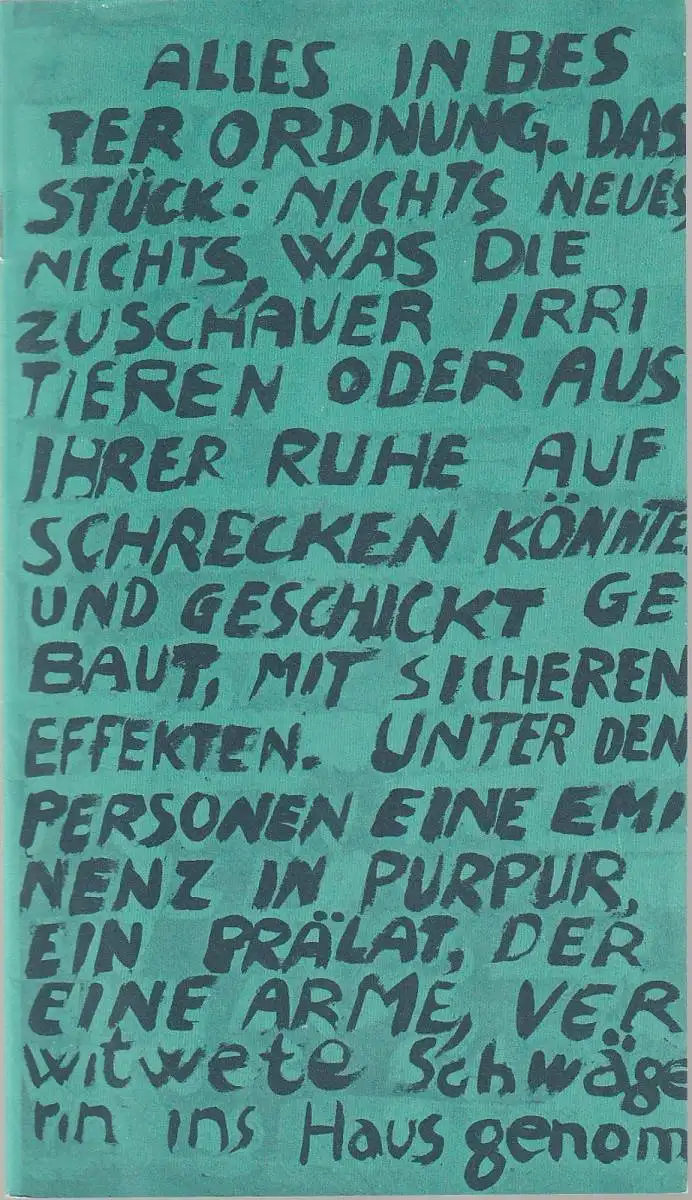 ALLES IN BES
TER ORDNUNG. DAS
STÜCK: NICHTS NEUES,
NICHTS, WAS DIE
ZUSCHAUER IRRI
TIEREN ODER AUS
IHRER RUHE AUF
SCHRECKEN KÖNNTE
UND GESCHICKT GE
BAUT, MIT SICHEREN
EFFEKTEN. UNTER DEN
PERSONEN EINE EMI
NENZ IN PURPUR,
EIN PRÄLAT, DER
EINE ARME, VER
witwete Schwäge
rin ins Haus genom